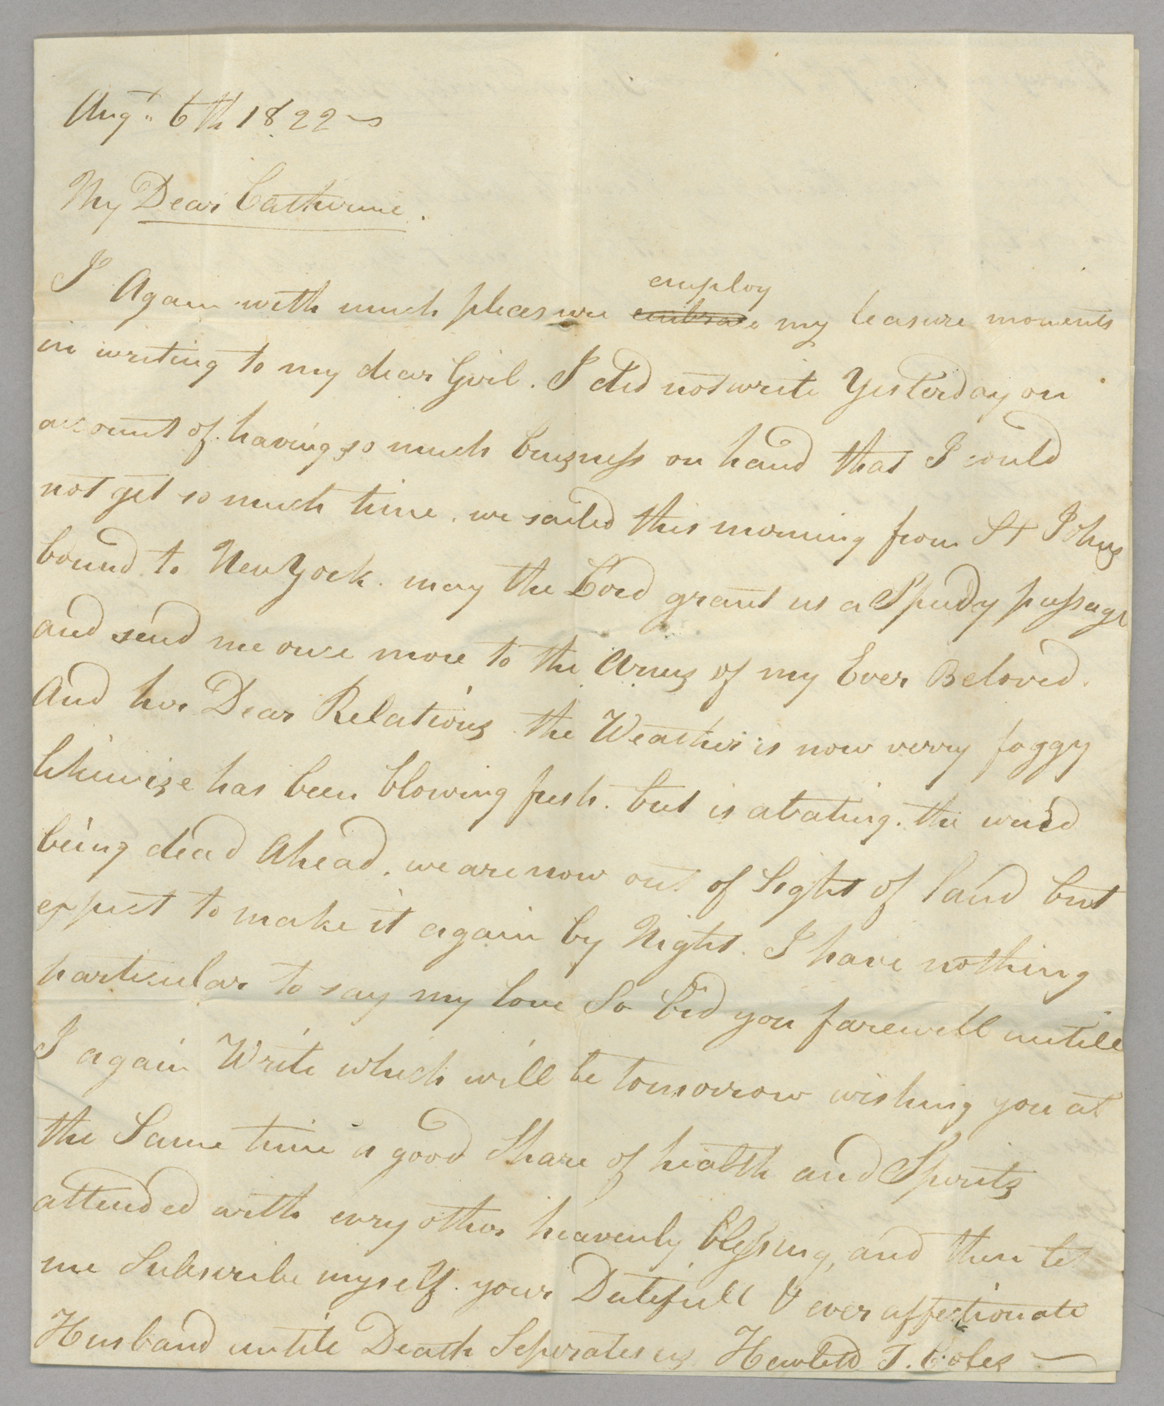 Augt. 6th 1822
My Dear Catherine.
I Again with much pleasure employ my leasure moments
in writing to my dear Girl. I did not write Yesterday on
account of having so much buizness on hand that I could
not get so much time. we sailed this morning from St Johns
bound to New York. may the Lord grant us a Speedy passage
and send me once more to the Arms of my Ever Beloved.
And her Dear Relations the Weather is now verry foggy
likewize has been blowing fresh. but is abating. the wind
being dead Ahead. we are now out of Sight of land but
expect to make it again by Night. I have nothing
particular to say my love So bid you farewell untill
I again Write which will be tomorrow wishing you at
the Same time a good Share of health and Spirits
attended with evry other heavenly blessing, and then let
me Subscribe myself your Dutifull & ever affectionate
Husband untill Death Seperates us Hewlett T. Coles